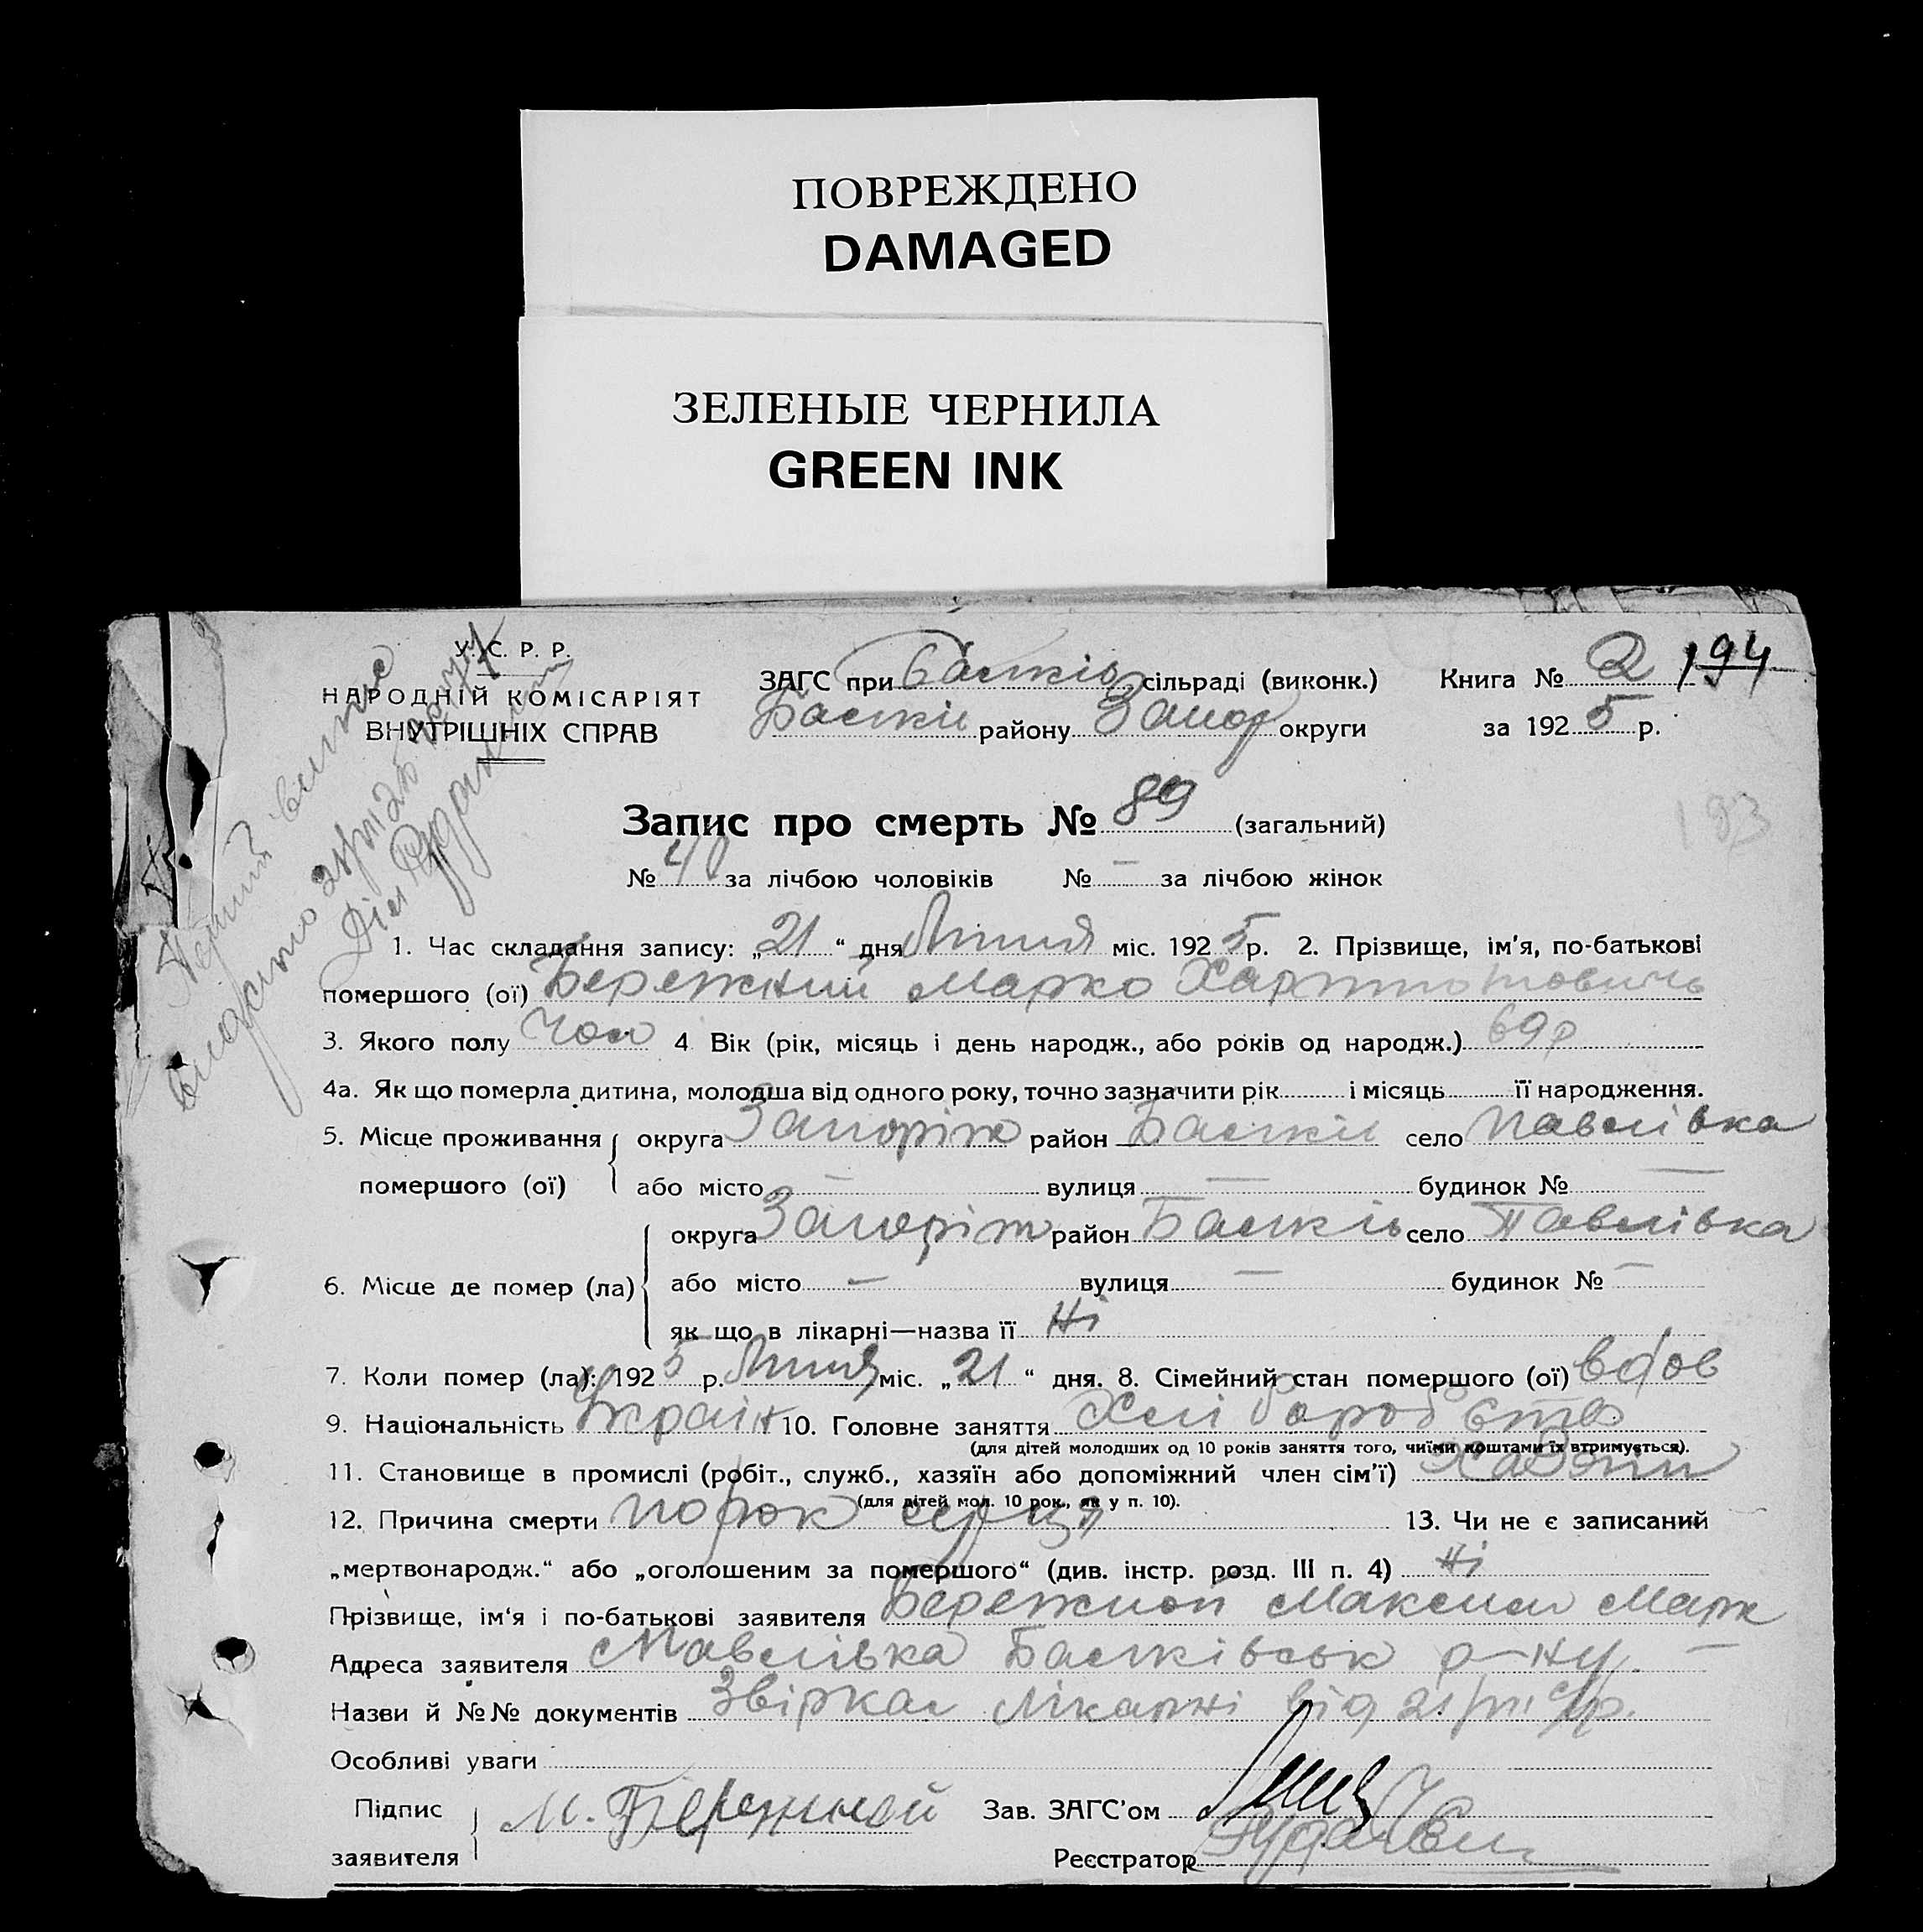 ПОВРЕЖДЕНО
DAMAGED
ЗЕЛЕНЫЕ ЧЕРНИЛА
GREEN INK
У. С. Р. Р.
НАРОДНІЙ КОМІСАРІЯТ
ВНУТРІШНІХ СПРАВ
ЗАГС при Балків сільраді (виконк.) Книга № 2 194
Балків району Запор округи за 1925 р.
183
Запис про смерть № 89 (загальний)
№ 40 за лічбою чоловіків № — за лічбою жінок
1. Час складання запису: „21“ дня Липня міс. 1925 р. 2. Прізвище, ім'я, по-батькові
помершого (ої) Бережний Марко Харитонович
3. Якого полу Чол 4 Вік (рік, місяць і день народж., або років од народж.) 69 р
4а. Як що померла дитина, молодша від одного року, точно зазначити рік і місяць її народження.
5. Місце проживання округа Запоріж район Балків село Павлівка
помершого (ої) або місто — вулиця — будинок № —
округа Запоріж район Балків село Павлівка
6. Місце де помер (ла) або місто — вулиця — будинок № —
як що в лікарні—назва її Ні
7. Коли помер (ла): 1925 р. Липня міс. „21“ дня. 8. Сімейний стан помершого (ої) вдов
9. Національність Україн 10. Головне заняття Хліборобство
(для дітей молодших од 10 років заняття того, чиїми коштами їх втримується).
11. Становище в промислі (робіт., служб., хазяїн або допоміжний член сім'ї) Хазяїн
(для дітей мол. 10 рок., як у п. 10).
12. Причина смерти порок серця 13. Чи не є записаний
„мертвонародж.“ або „оголошеним за помершого“ (див. інстр. розд. III п. 4) Ні
Прізвище, ім'я і по-батькові заявителя Бережной Максим Марк
Адреса заявителя Павлівка Балківськ р-ну. —
Назви й №№ документів лікарні від 21/VII с/р.
Особливі уваги
Підпис М. Бережной Зав. ЗАГС'ом
заявителя Реєстратор